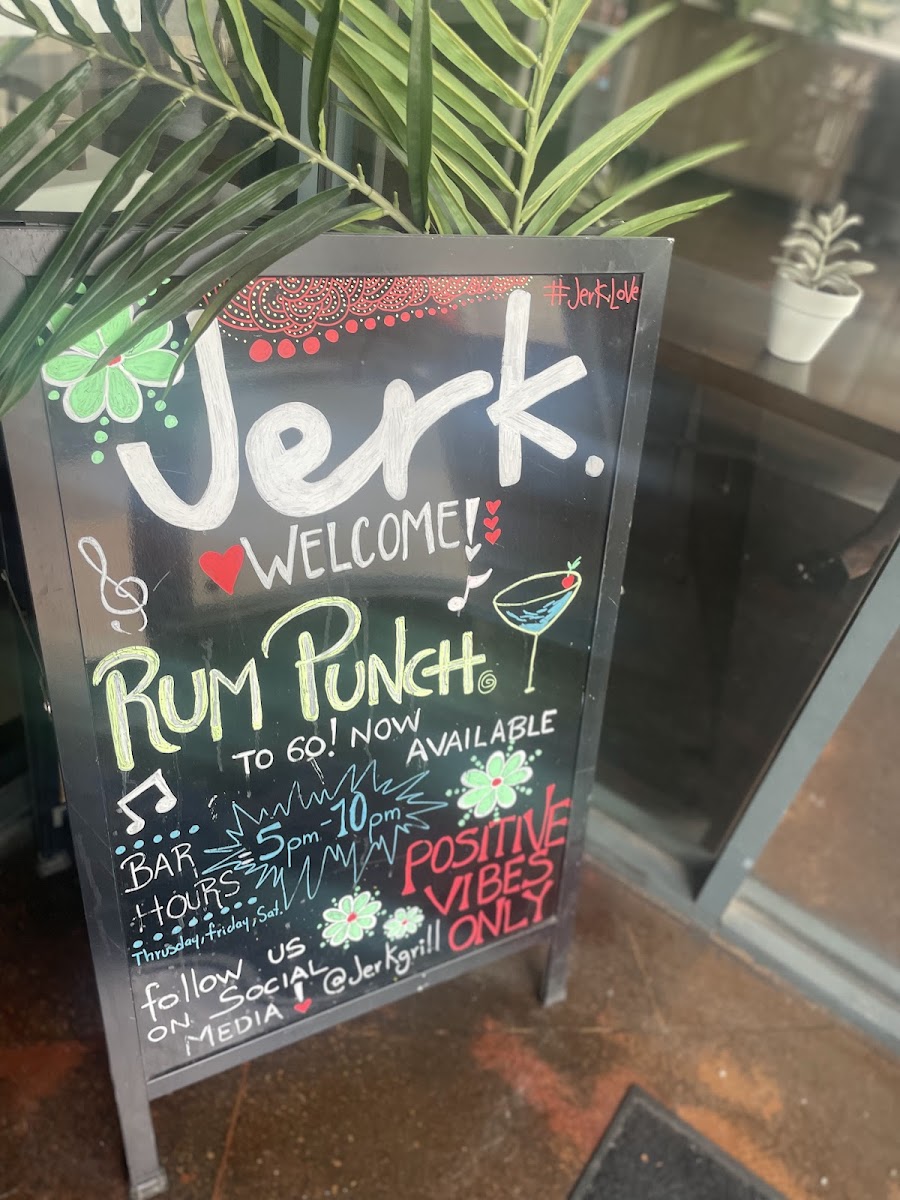 #JerkLove
Jerk.
WELCOME!
RUM PUNCH
TO GO! NOW AVAILABLE
5pm-10pm
BAR
HOURS
Thrusday, friday, Sat.
POSITIVE
VIBES
ONLY
follow us
ON SOCIAL
MEDIA! @Jerkgrill